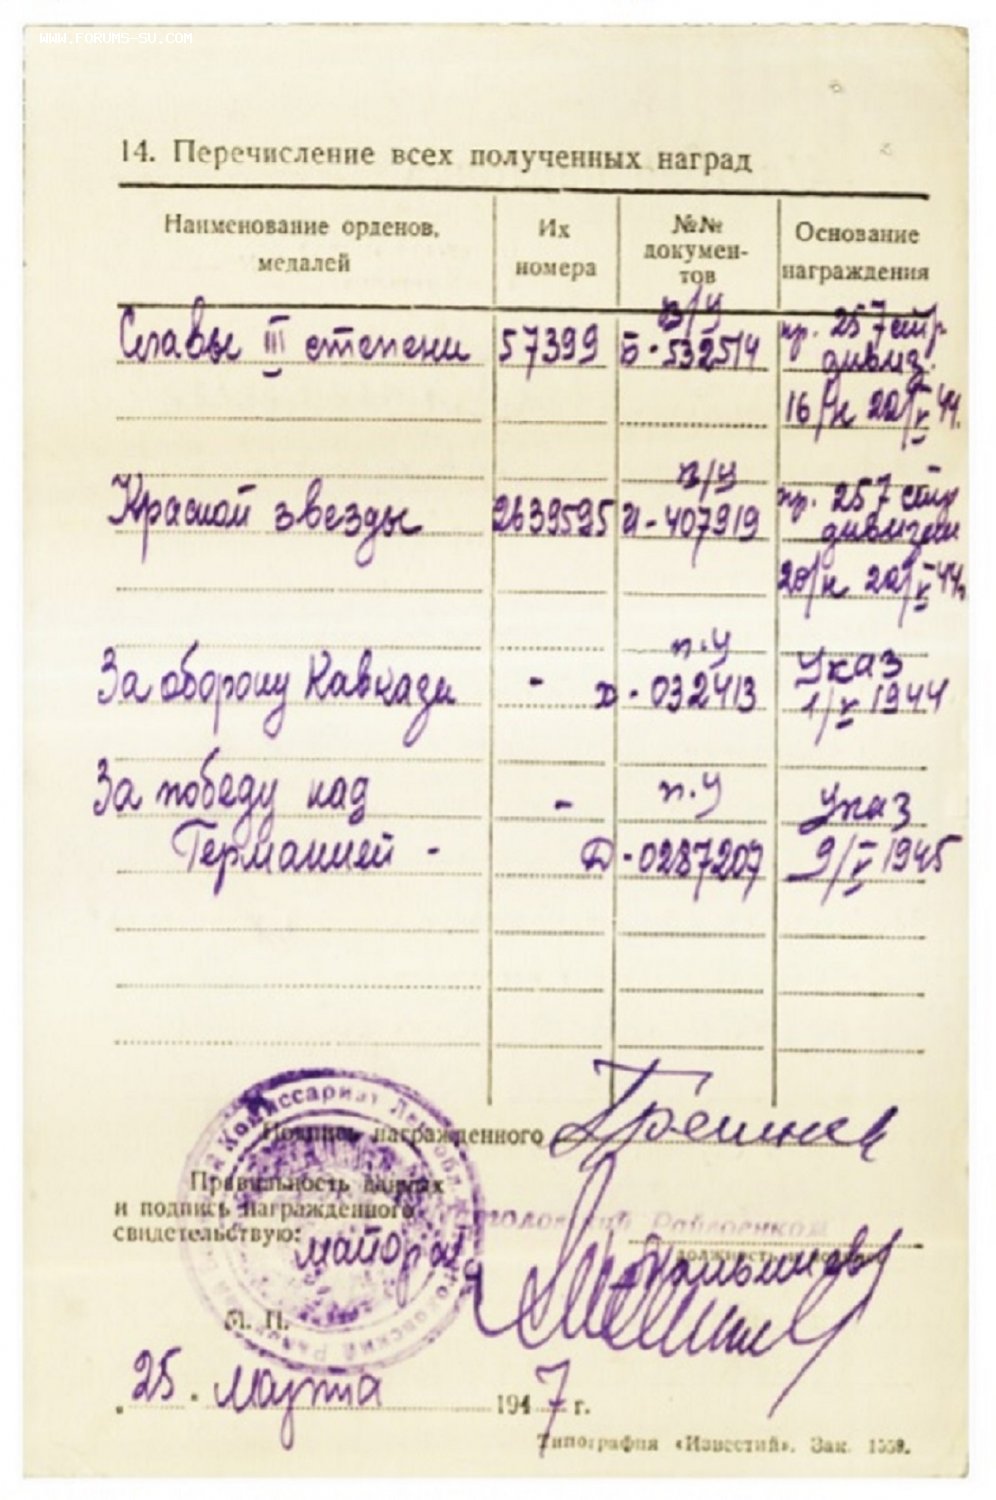 WWW.FORUMS-SU.COM
14. Перечисление всех полученных наград
Наименование орденов, медалей
Их номера
№№ документов
Основание награждения
Славы III степени 57399 в/у Б-532514 пр. 257 стр. дивиз. 16/н 22/V 44.
Красной звезды 2639595 в/у И-407919 пр. 257 стр дивизии 20/н 22/V 44.
За оборону Кавказа - п.у - 032413 Указ 1/V 1944
За победу над п.у Указ
Германией - Д-0287207 9/V 1945
Комиссариат
Подпись награжденного
Правильность данных
и подпись награжденного
свидетельствую: майор
Райвоенком
М. П.
„25" марта 1947 г.
Типография «Известий». Зак. 1559.